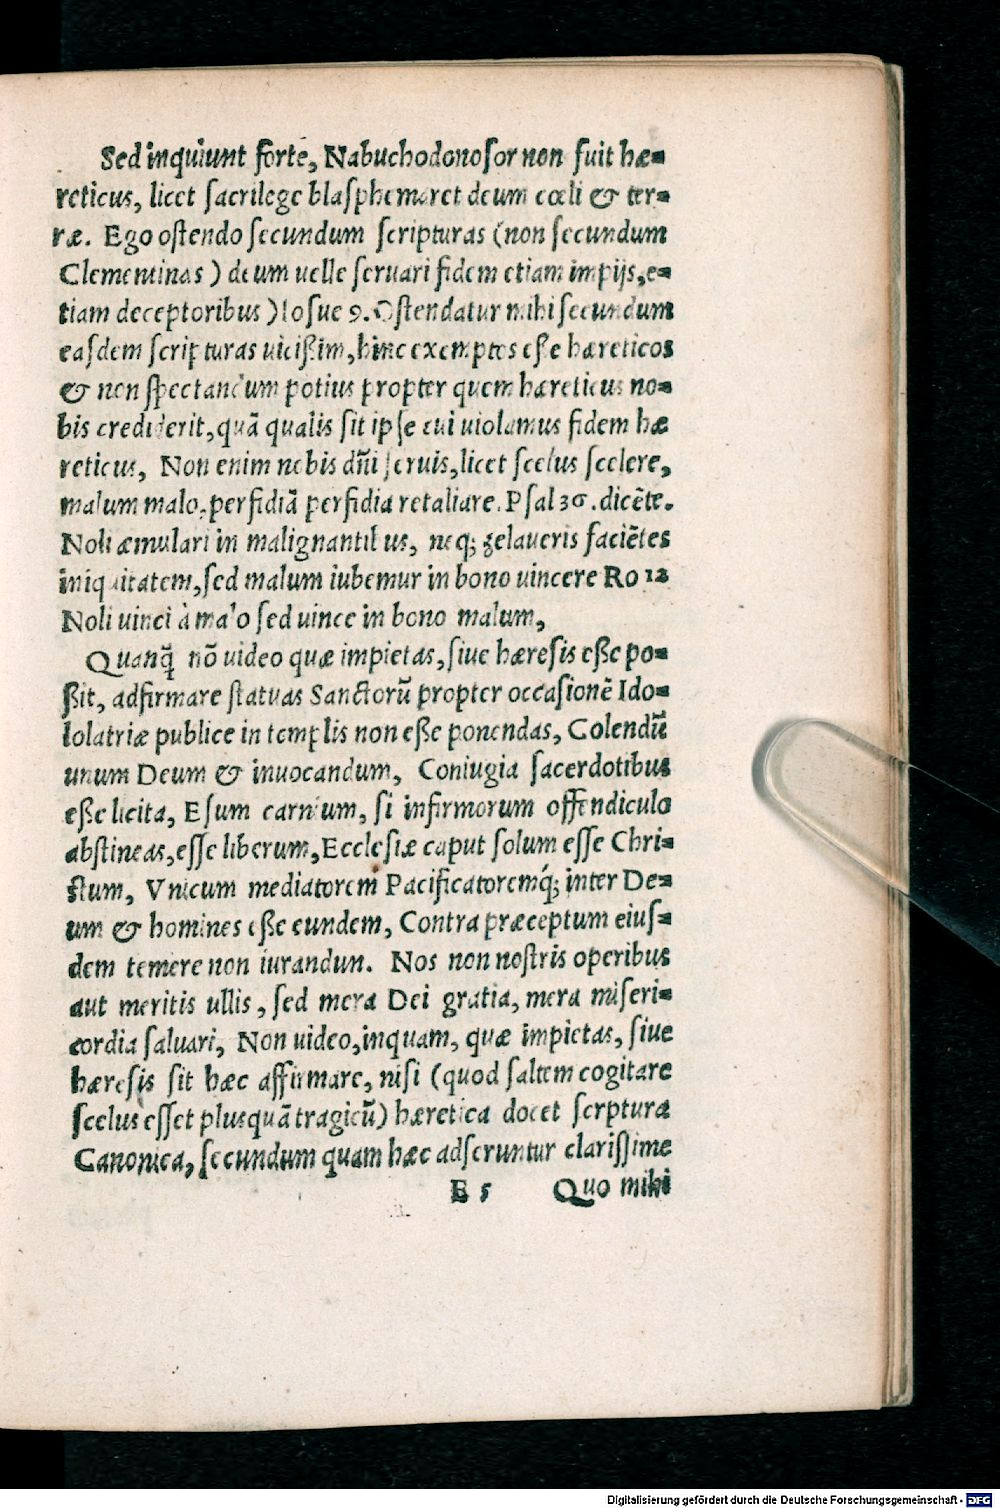 Sed inquiunt forte, Nabuchodonosor non fuit hæ-
reticus, licet sacrilege blasphemaret deum cœli & ter-
ræ. Ego ostendo secundum scripturas (non secundum
Clementinas) deum uelle seruari fidem etiam impijs, e-
tiam deceptoribus) Iosue 9. Ostendatur mihi secundum
easdem scripturas uicißim, hinc exemptos eße hæreticos
& non spectandum potius propter quem hæreticus no-
bis crediderit, quā qualis sit ipse cui uiolamus fidem hæ
reticus, Non enim nobis dñi seruis, licet scelus scelere,
malum malo, perfidiā perfidia retaliare. Psal 36. dicēte.
Noli æmulari in malignantibus, neq; zelaueris faciētes
iniquitatem, sed malum iubemur in bono uincere Ro 12
Noli uinci à malo sed uince in bono malum,
Quanq̄ nō uideo quæ impietas, siue hæresis eße po-
ßit, adfirmare statuas Sanctorū propter occasionē Ido-
lolatriæ publice in templis non eße ponendas, Colendū
unum Deum & inuocandum, Coniugia sacerdotibus
eße licita, Esum carnium, si infirmorum offendiculo
abstineas, esse liberum, Ecclesiæ caput solum esse Chri-
stum, Vnicum mediatorem Pacificatoremq́; inter De-
um & homines eße eundem, Contra præceptum eius-
dem temere non iurandun. Nos non nostris operibus
aut meritis ullis, sed mera Dei gratia, mera miseri-
cordia saluari, Non uideo, inquam, quæ impietas, siue
hæresis sit hæc affirmare, nisi (quod saltem cogitare
scelus esset plusquā tragicū) hæretica docet scrptura
Canonica, secundum quam hæc adseruntur clarissime
E 5 Quo mihi
Digitalisierung gefördert durch die Deutsche Forschungsgemeinschaft - DFG